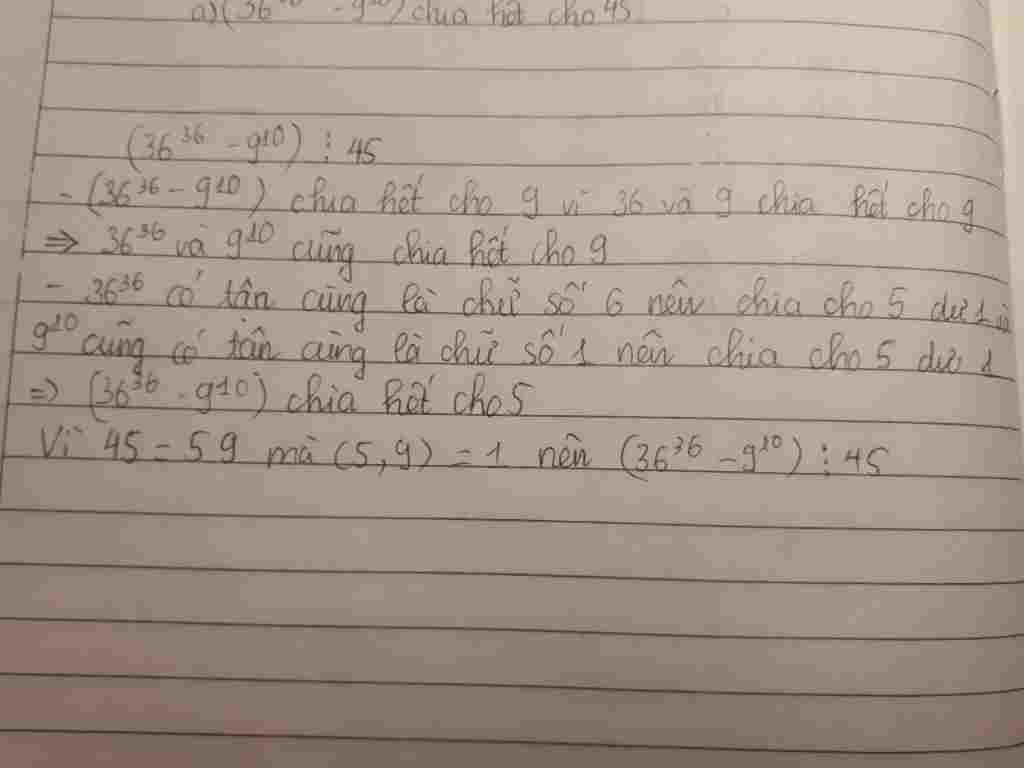 a) (36³⁶ - 9¹⁰) chia hết cho 45
(36³⁶ - 9¹⁰) ⋮ 45
- (36³⁶ - 9¹⁰) chia hết cho 9 vì 36 và 9 chia hết cho 9
⇒ 36³⁶ và 9¹⁰ cũng chia hết cho 9
- 36³⁶ có tận cùng là chữ số 6 nên chia cho 5 dư 1 và
9¹⁰ cũng có tận cùng là chữ số 1 nên chia cho 5 dư 1
⇒ (36³⁶ - 9¹⁰) chia hết cho 5
Vì 45 = 5 9 mà (5,9) = 1 nên (36³⁶ - 9¹⁰) ⋮ 45